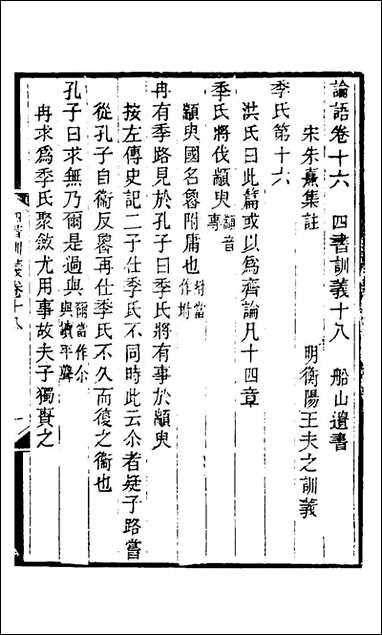 論語卷十六　四書訓義十八　船山遺書
宋朱熹集註
明衡陽王夫之訓義
季氏第十六
洪氏曰此篇或以爲齊論凡十四章
季氏將伐顓臾顓音專
顓臾國名魯附庸也附當作坿
冉有季路見於孔子曰季氏將有事於顓臾
按左傳史記二子仕季氏不同時此云尒者疑子路嘗
從孔子自衞反魯再仕季氏不久而復之衞也
孔子曰求無乃爾是過與爾當作尒與讀平聲
冉求爲季氏聚斂尤用事故夫子獨責之
四書訓義卷十八
一